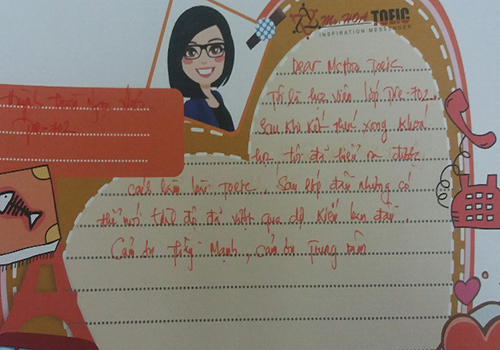 Ms. HOA TOEIC
INSPIRATION MESSENGER
Dear Ms Hoa Toeic
Tôi là học viên lớp Pre-702
Sau khi kết thúc xong khoá
học tôi đã hiểu ra được
cách làm bài Toeic. Sau lớp đầu nhưng có
thể nói thầy đã vượt qua dự kiến ban đầu.
Cảm ơn thầy Mạnh, cảm ơn Trung tâm
Pre-702